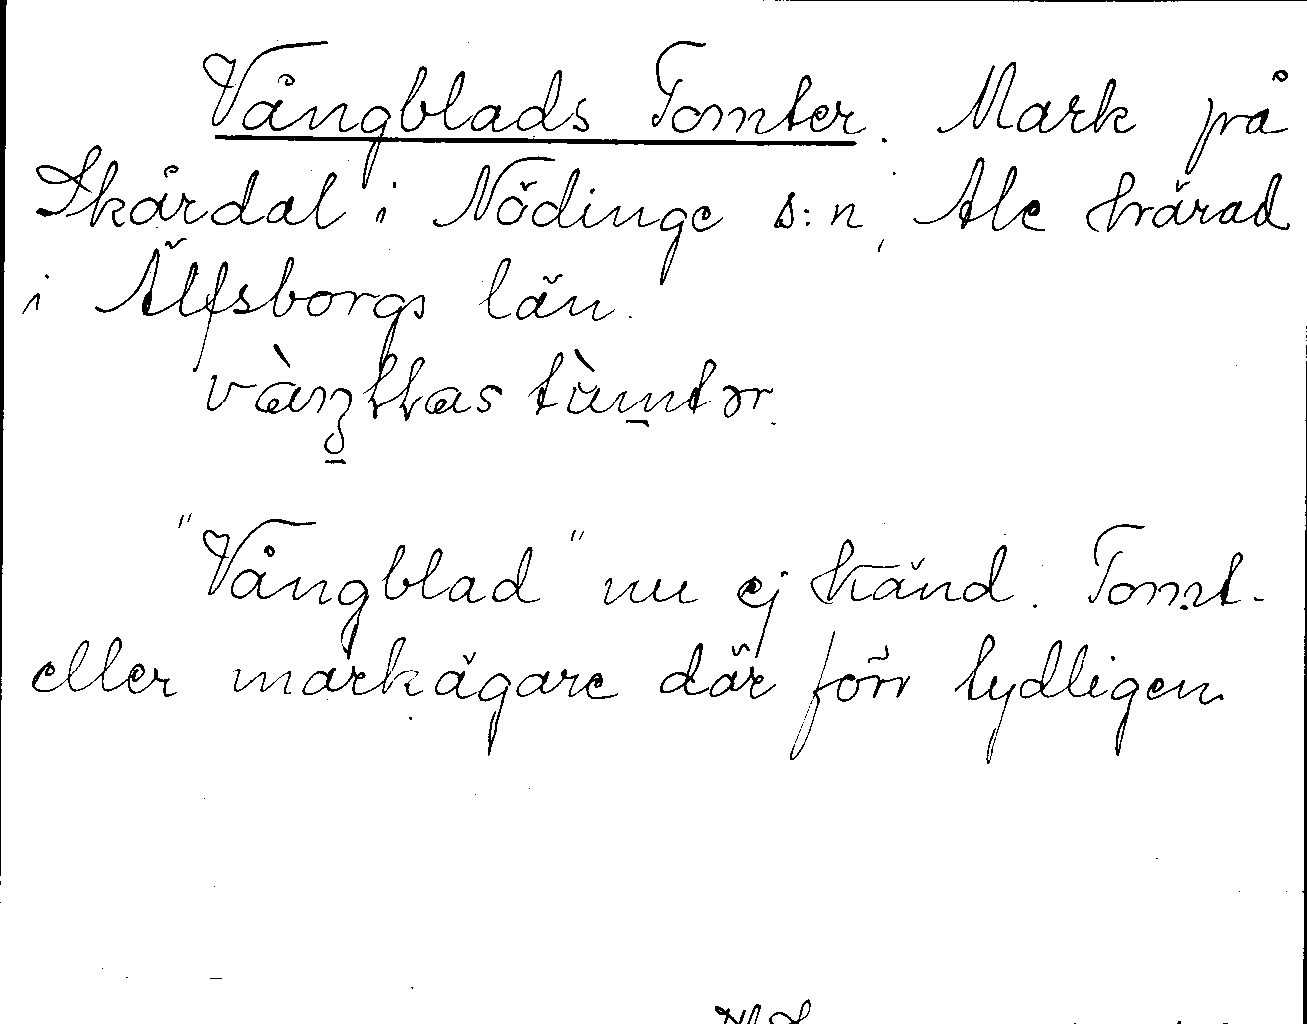 Vångblads Tomter. Mark på
Skårdal i Nödinge s:n, Ale härad
i Älfsborgs län.
vàŋblas tùmtər.
"Vångblad" nu ej känd. Tomt-
eller markägare där förr tydligen